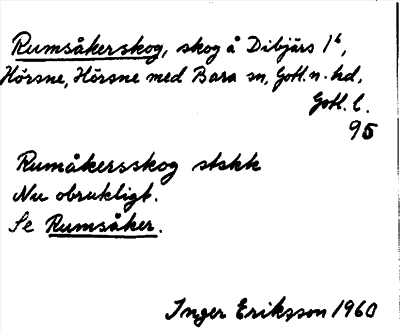 Rumsåkerskog, skog å Dibjärs 1⁶,
Hörsne, Hörsne med Bara sn, Gotl. n. hd,
Gotl. l.
95
Rumåkersskog stskk
Nu obrukligt.
Se Rumsåker.
Inger Eriksson 1960